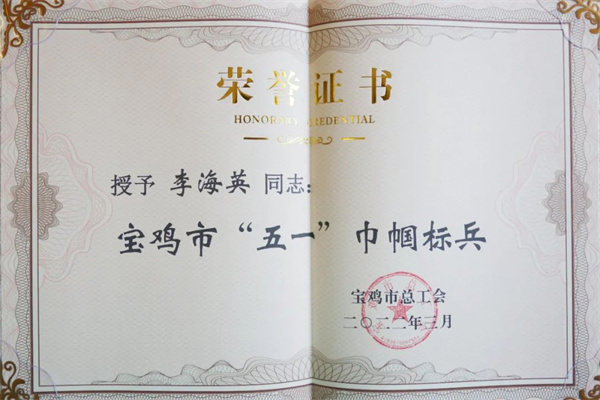 荣誉证书
HONORARY CREDENTIAL
授予 李海英 同志：
宝鸡市“五一”巾帼标兵
宝鸡市总工会
二〇二二年三月